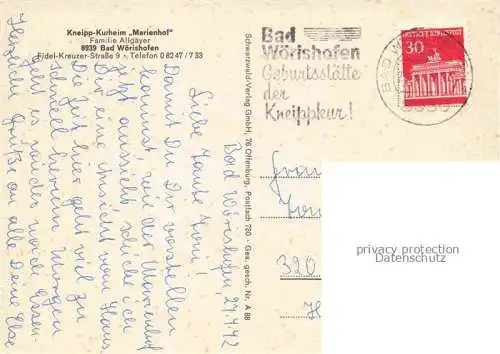 Kneipp-Kurheim „Marienhof"
Familie Allgäyer
8939 Bad Wörishofen
Fidel-Kreuzer-Straße 9 · Telefon 0 82 47 / 7 33
Bad Wörishofen 27.4.72
Liebe Tante Toni!
Damit Du Dir vorstellen
kannst, wie der Marienhof
jetzt aussieht schicke ich
Dir eine Ansicht vom Haus.
Die Zeit hier geht viel zu
schnell herum. Morgen
geht es wieder nach Essen
Herzliche Grüße an alle Deine Else
Schwarzwald-Verlag GmbH, 76 Offenburg, Postfach 780 - Ges. gesch. Nr. A 88
Bad
Wörishofen
Geburtsstätte
der
Kneippkur!
BAD W
DEUTSCHE BUNDESPOST
30
Frau
320
privacy protection
Datenschutz